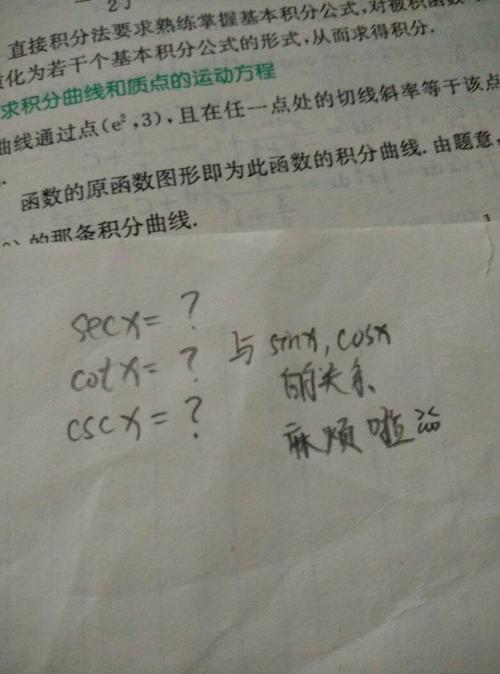 2√
直接积分法要求熟练掌握基本积分公式,对被积函数
化为若干个基本积分公式的形式,从而求得积分.
求积分曲线和质点的运动方程
曲线通过点(e²,3),且在任一点处的切线斜率等于该点
函数的原函数图形即为此函数的积分曲线.由题意,
的那条积分曲线.
secx= ?
cotx= ? 与 sinx, cosx
cscx= ? 的关系
麻烦啦